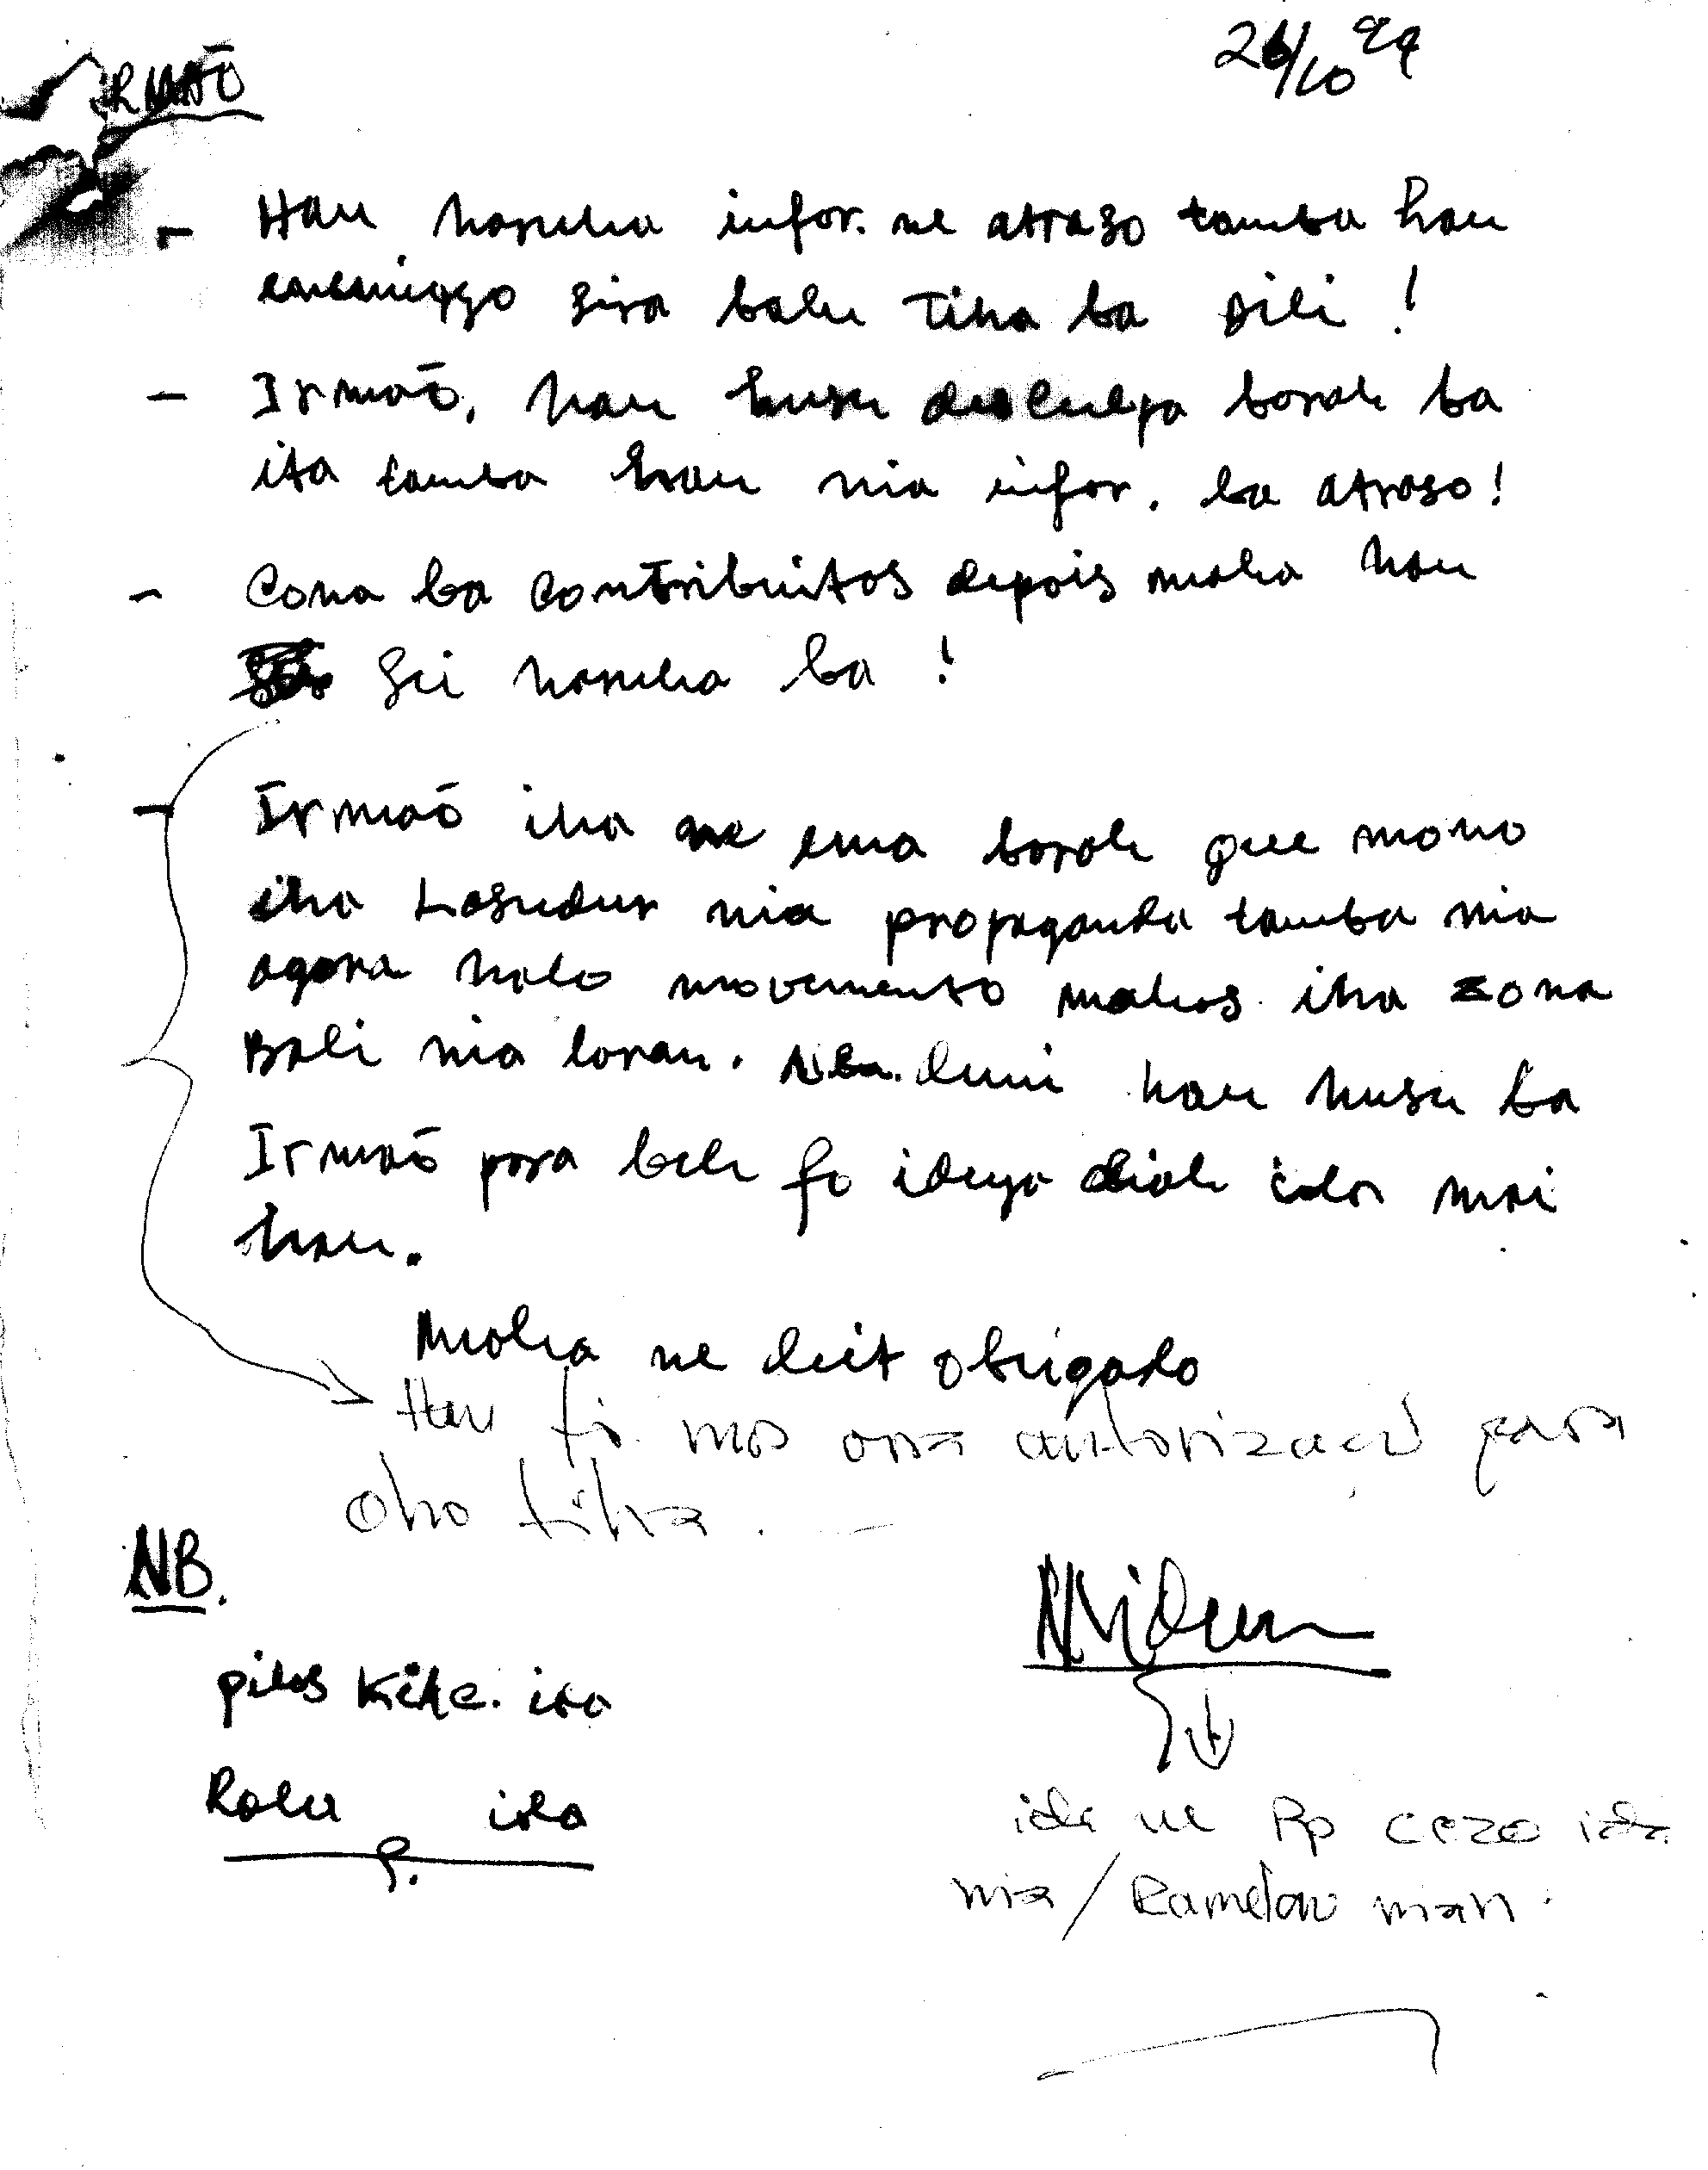 26/10 94
IRMÃO
- Hau haruka infor. ne atrazo tamba hau
enemiggo sira balu Tiha ba Dili !
- Irmaõ, hau husu desculpa barak ba
ita tamba hau nia infor. ba atraso!
- Cona ba contribuitos depois maka hau
sei haruka ba !
- Irmaõ iha ne ema barak que monu
iha Lasudur nia propaganda tamba nia
agora halo movemento makas iha zona
Bali nia laran. Nba. duni hau husu ba
Irmaõ para bele fo ideya diak ida mai
hau.
Maka ne deit obrigado
Hau fó mos ona autorizaçaõ para
oho tiha. —
NB.
pilas Kite. ida
Radu ida
P.
ida ne Rp cezo ida
nia / Ramelau nian.